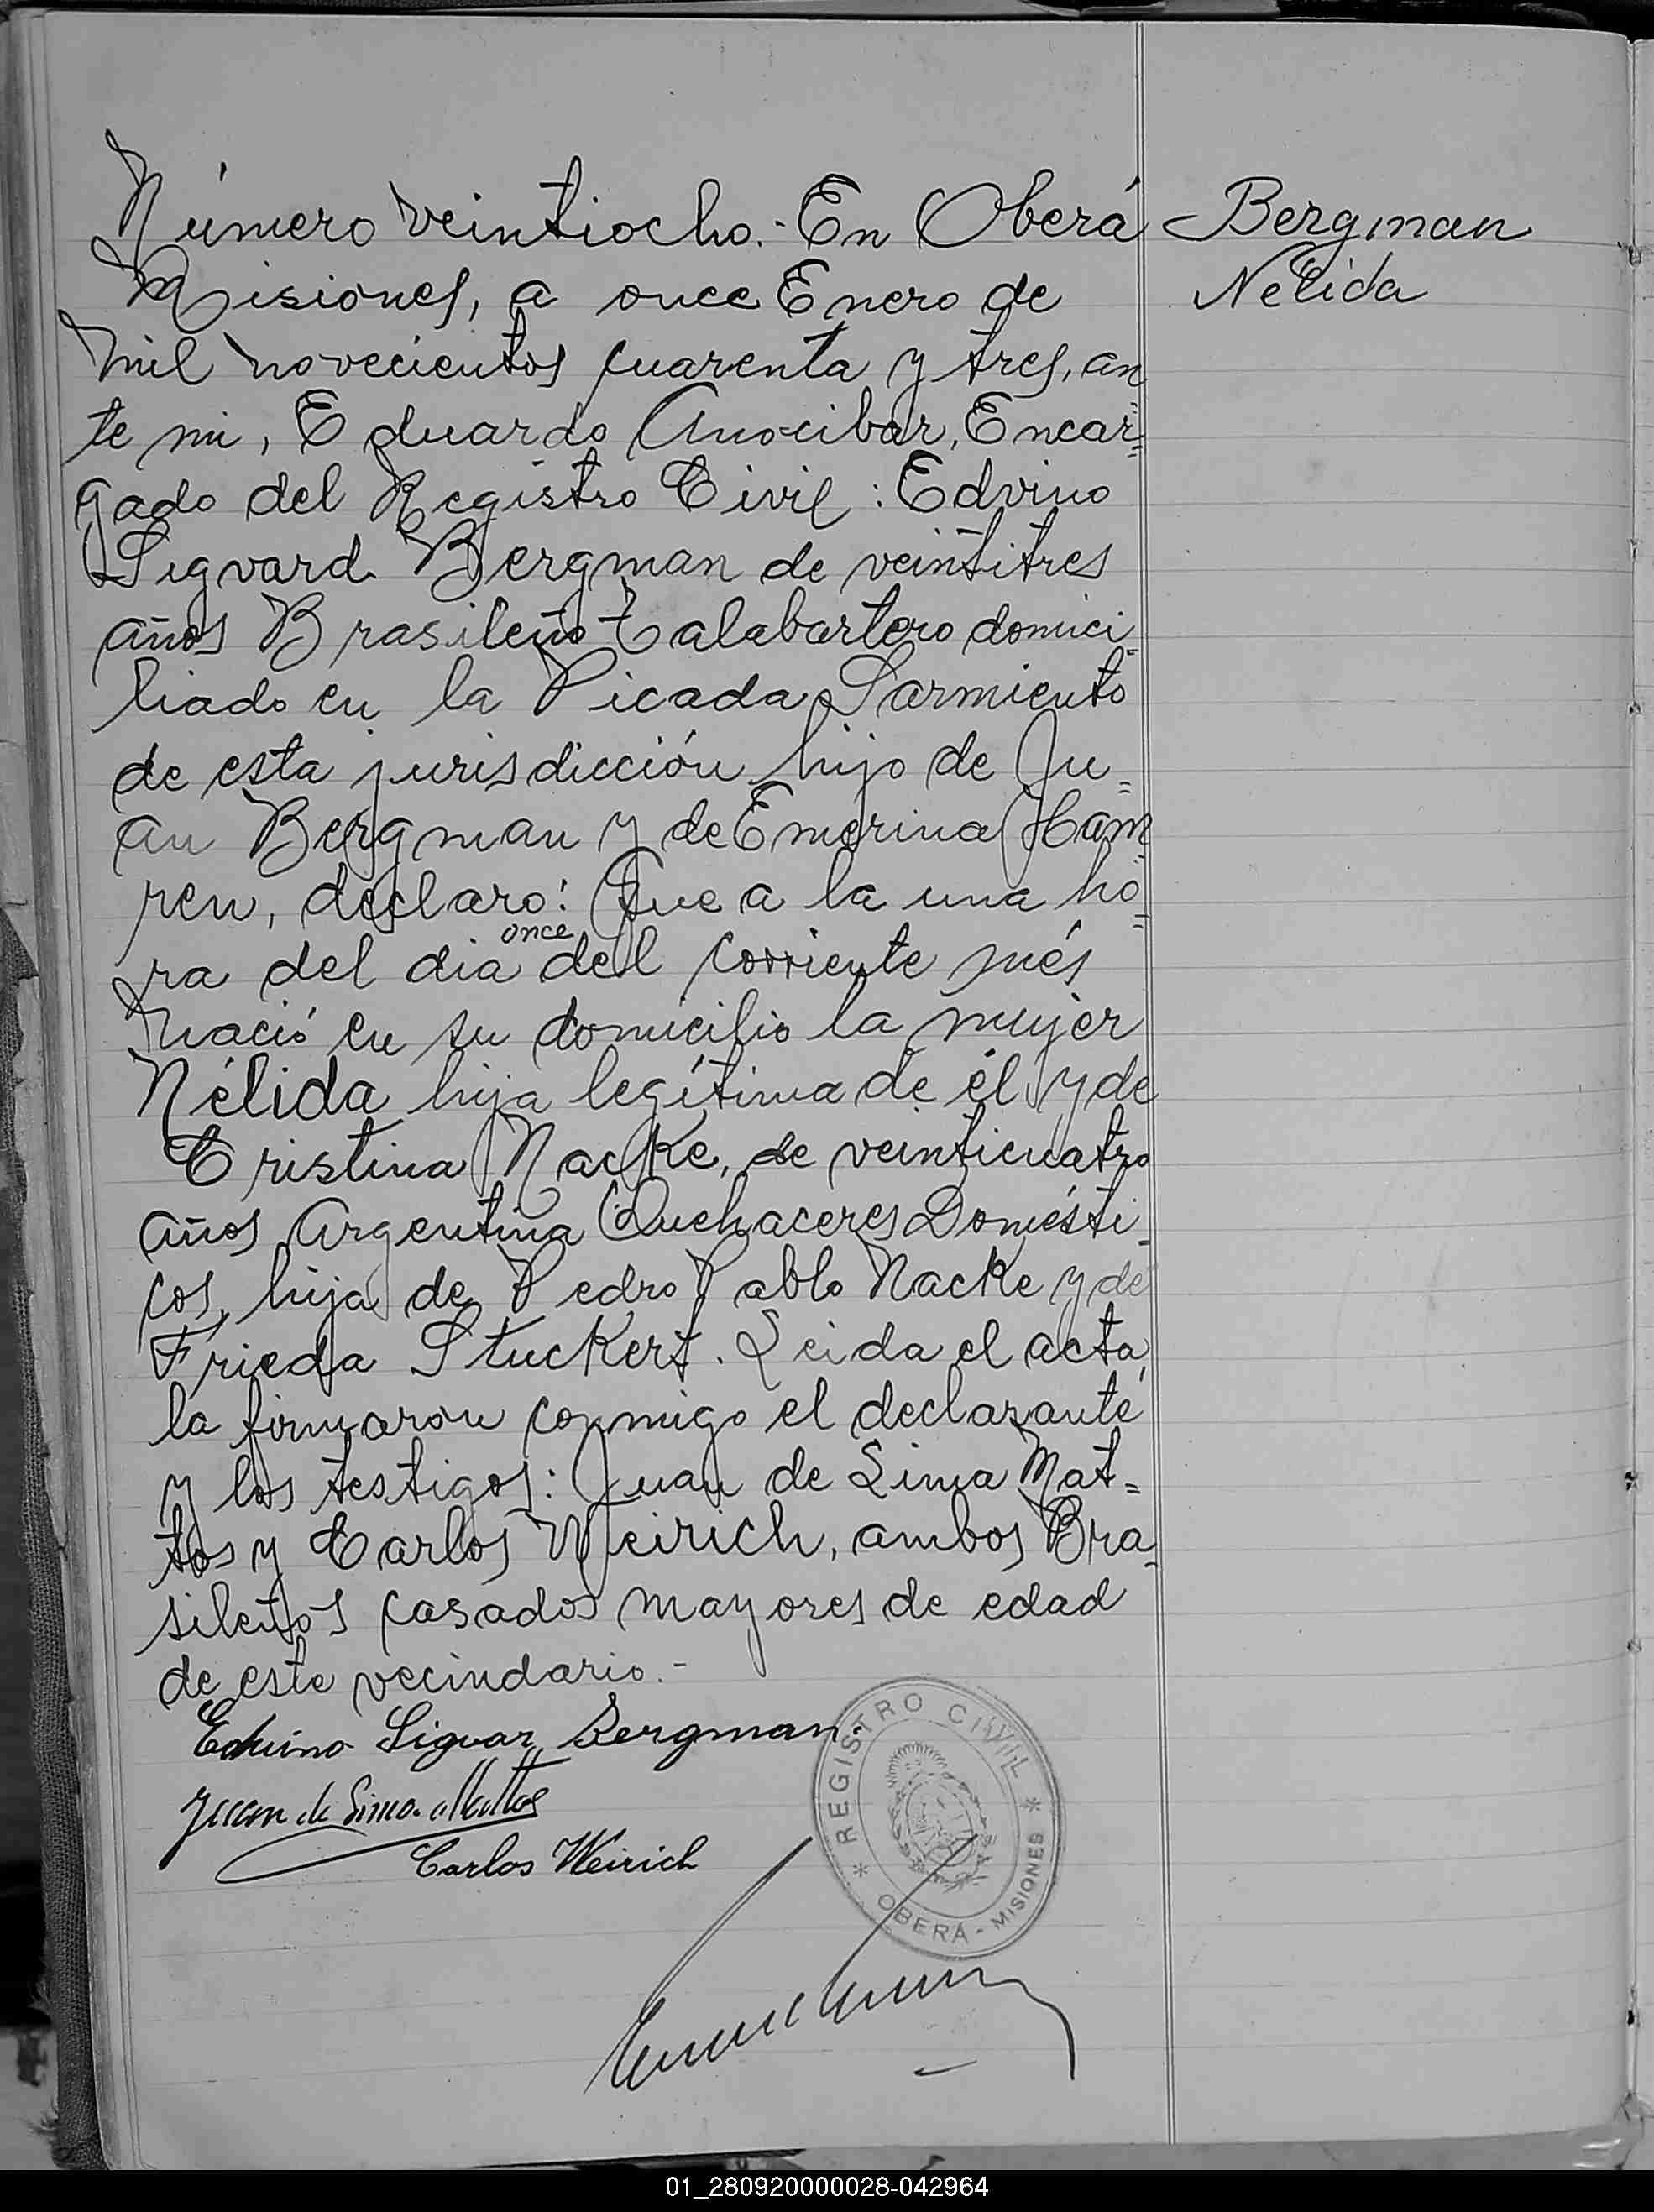 Número veintiocho.- En Oberá
Bergman
Nélida
Misiones, a once Enero de
mil novecientos cuarenta y tres, an
te mi, Eduardo Anocibar, Encar=
gado del Registro Civil: Edvino
Sigvard Bergman de veintitres
años Brasileño Talabartero domici=
liado en la Picada Sarmiento
de esta jurisdicción hijo de Ju=
an Bergman y de Emerina Ham=
ren, declaro: Que a la una ho=
once
ra del dia del corriente més
nació en su domicilio la mujer
Nélida hija legítima de él y de
Cristina Nacke, de veinticuatro
años Argentina Quehaceres Domésti=
cos, hija de Pedro Pablo Nacke y de
Frieda Stuckert. Leida el acta,
la firmaron conmigo el declarante
y los testigos: Juan de Lima Mat=
tos y Carlos Weirich, ambos Bra=
sileños casados mayores de edad
de este vecindario.-
Edvino Siguar Bergman.
Juan de Lima Mattos
Carlos Weirich
* REGISTRO CIVIL *
OBERÁ - MISIONES
01_280920000028-042964